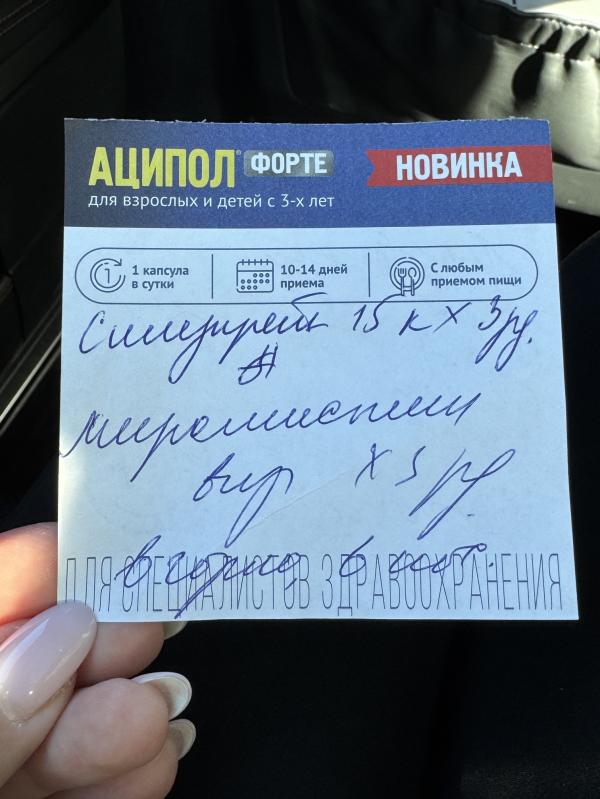 АЦИПОЛ® ФОРТЕ
НОВИНКА
для взрослых и детей с 3-х лет
1 капсула
в сутки
10-14 дней
приема
С любым
приемом пищи
Синупрет 15 к х 3 рд.
мирамистин
х 3 рд
в горло
ДЛЯ СПЕЦИАЛИСТОВ ЗДРАВООХРАНЕНИЯ